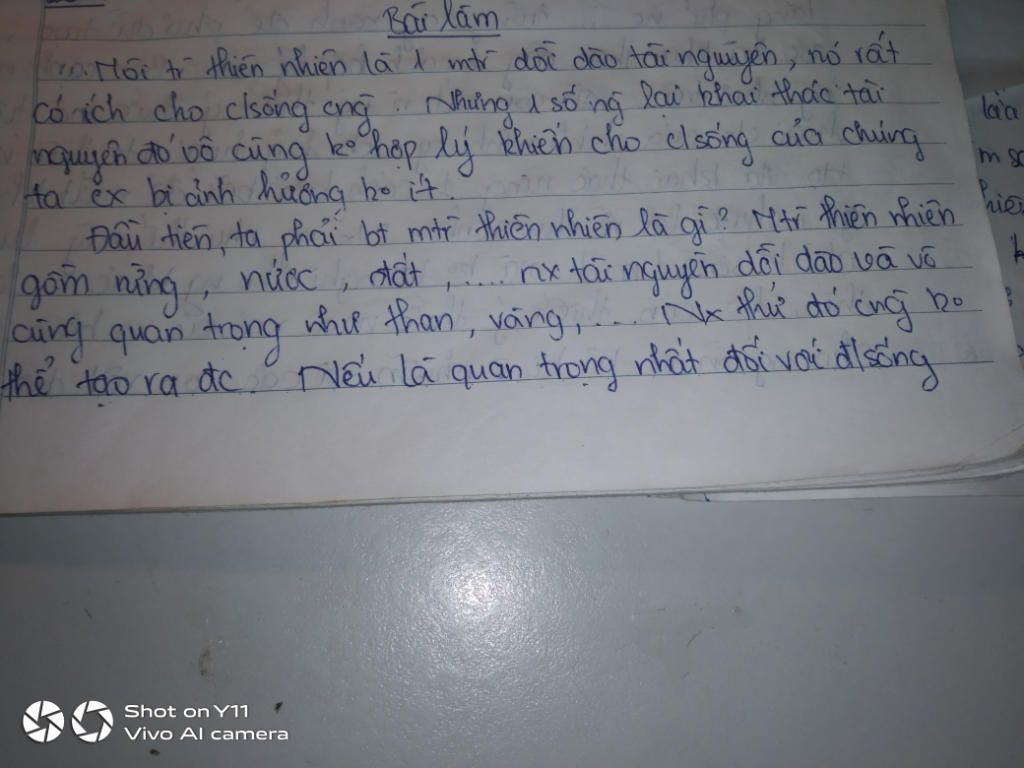 Bài làm
Môi tr thiên nhiên là 1 mtr dồi dào tài nguyên, nó rất
có ích cho c/sống cng. Nhưng 1 số ng lại khai thác tài
nguyên đó vô cùng ko hợp lý khiến cho c/sống của chúng
ta bị ảnh hưởng ko ít.
Đầu tiên, ta phải bt mtr thiên nhiên là gì? Mtr thiên nhiên
gồm rừng, nước, đất, .... nx tài nguyên dồi dào và vô
cùng quan trọng như than, vàng, ... Nx thứ đó cng ko
thể tạo ra đc. Nếu là quan trọng nhất đối với đ/sống
Shot on Y11
Vivo AI camera